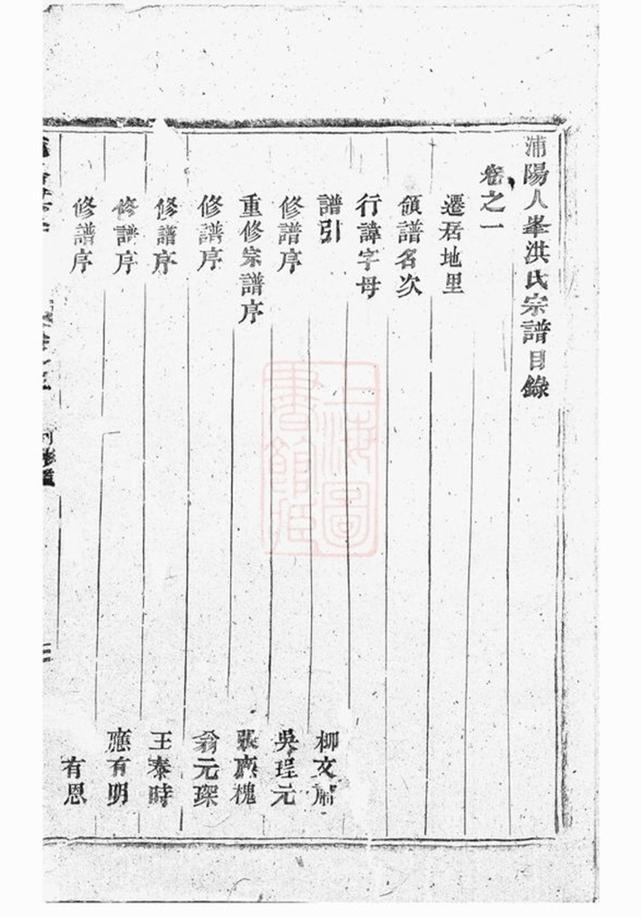 浦陽人峯洪氏宗譜目錄
卷之一
遷居地里
領譜名次
行諱字母
譜引 柳文
修譜序 吳珵元
重修宗譜序 張應槐
修譜序 翁元琛
修譜序 王泰時
修譜序 應有明
修譜序 有恩
上海圖
書館